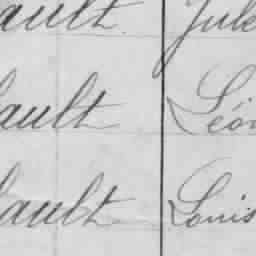 ault Jule
ault Léon
ault Louis